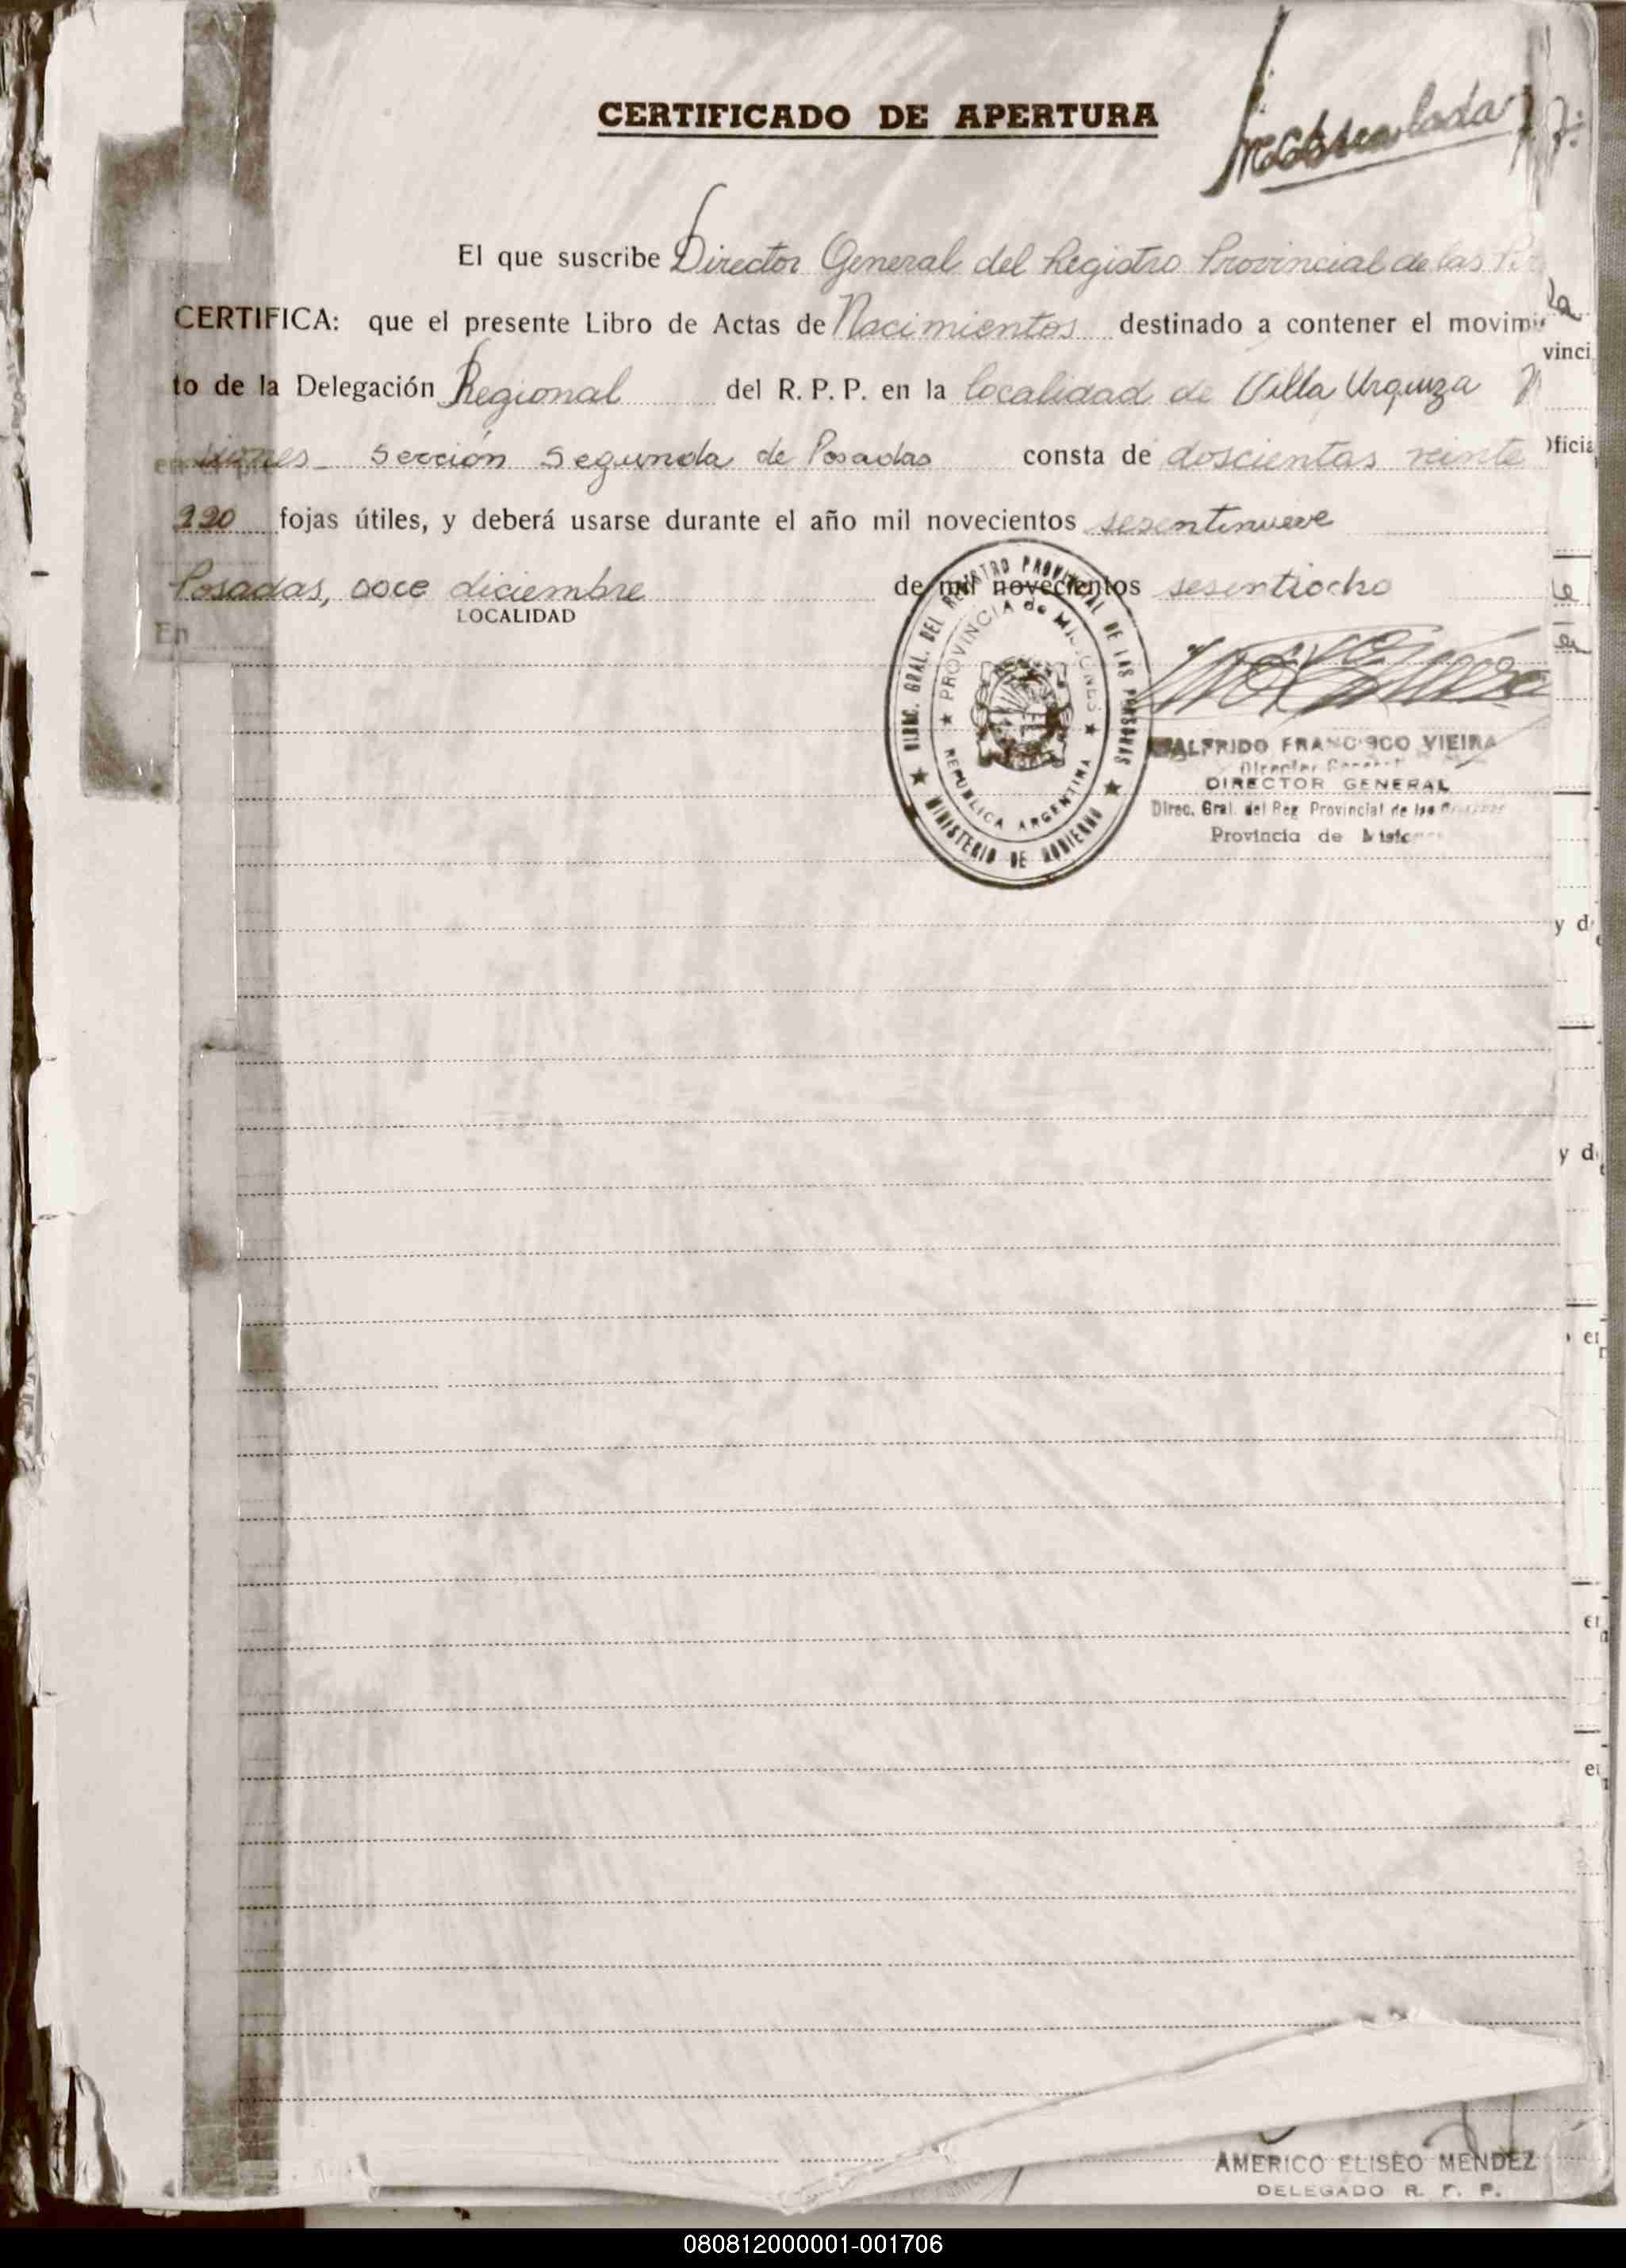 CERTIFICADO DE APERTURA
El que suscribe Director General del Registro Provincial de las
CERTIFICA: que el presente Libro de Actas de Nacimientos destinado a contener el movimi
to de la Delegación Regional del R. P. P. en la localidad de Villa Urquiza
siones Sección Segunda de Posadas consta de doscientas veinte
220 fojas útiles, y deberá usarse durante el año mil novecientos sesentinueve
Posadas, doce diciembre de mil novecientos sesentiocho
LOCALIDAD
En
DIREC. GRAL. DEL REGISTRO PROVINCIAL DE LAS PERSONAS
PROVINCIA de MISIONES
REPUBLICA ARGENTINA
MINISTERIO DE GOBIERNO
ALFRIDO FRANCISCO VIEIRA
Director General
DIRECTOR GENERAL
Direc. Gral. del Reg Provincial de las Personas
Provincia de Misiones
la
vinci
Oficia
y d
y d
AMERICO ELISEO MENDEZ
DELEGADO R. P. P.
080812000001-001706